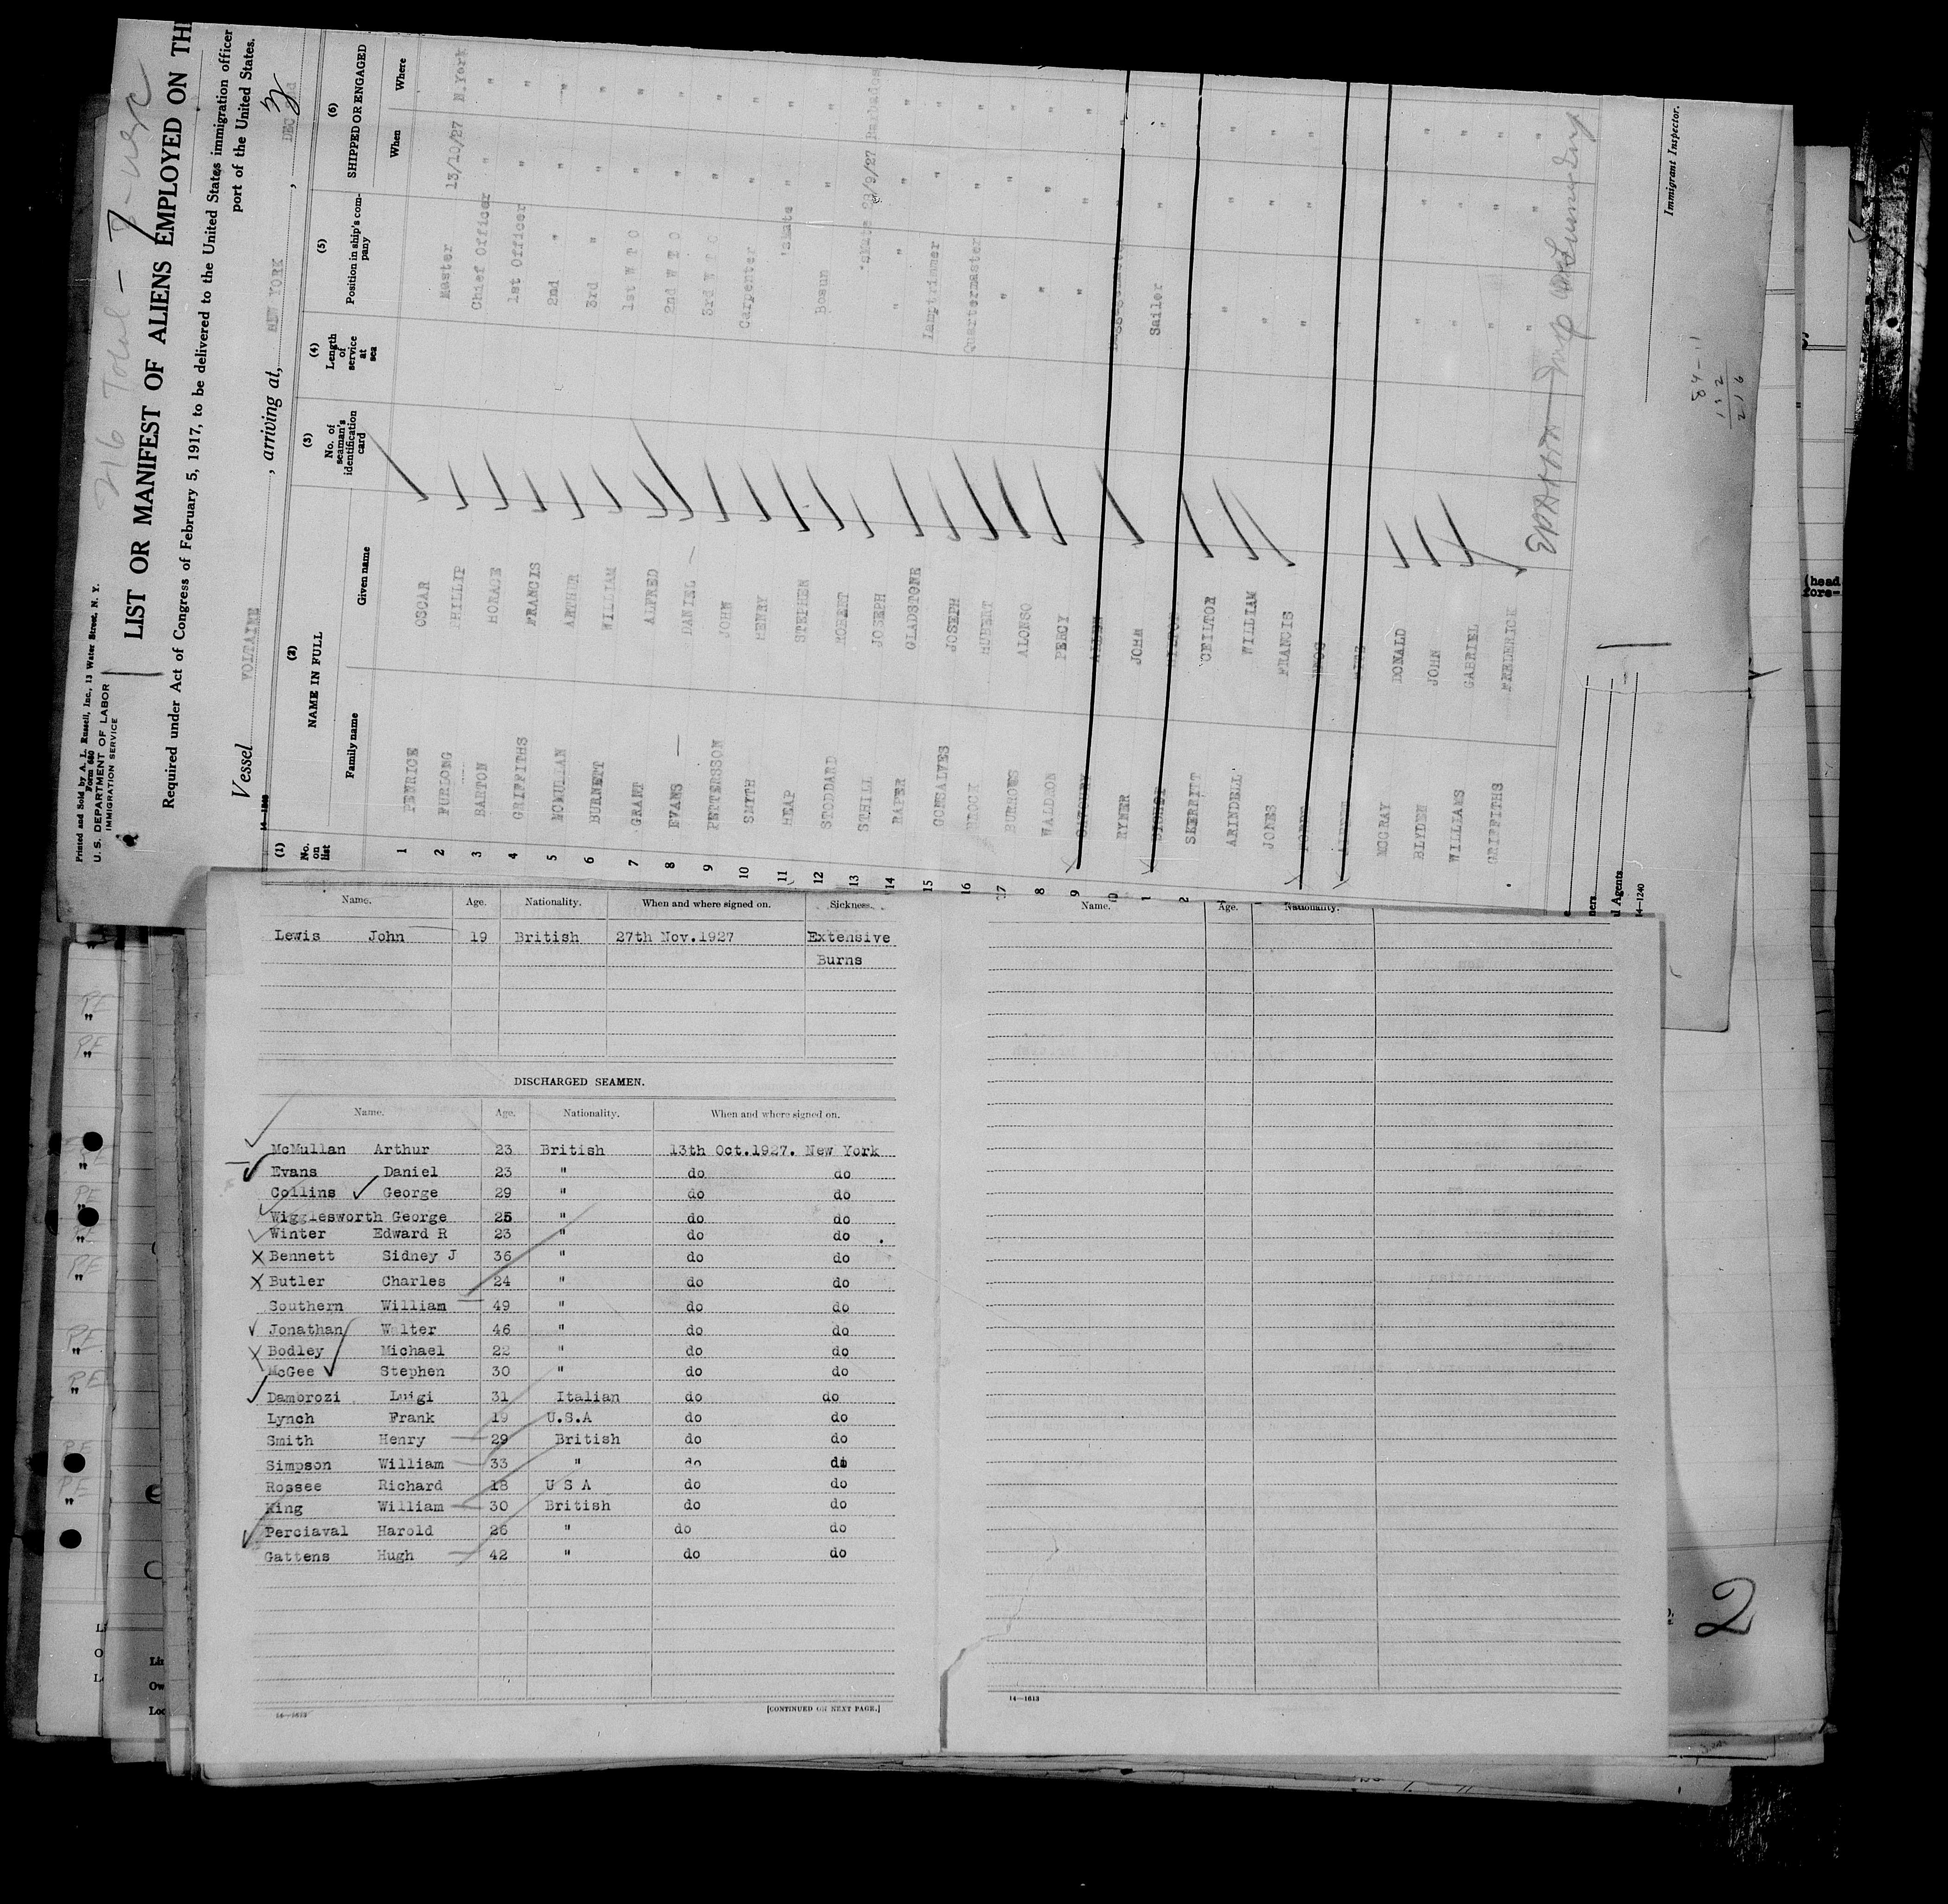 216 Total -
Printed and Sold by A. L. Russell, Inc., 13 Water Street, N. Y.
Form 680
U. S. DEPARTMENT OF LABOR
IMMIGRATION SERVICE
LIST OR MANIFEST OF ALIENS EMPLOYED ON TH
Required under Act of Congress of February 5, 1917, to be delivered to the United States immigration officer
port of the United States.
Vessel VOLTAIRE , arriving at, NEW YORK , DEC
(1) (2) (3) (4) (5) (6)
No. on list NAME IN FULL No. of seaman's identification card Length of service at sea Position in ship's company SHIPPED OR ENGAGED
Family name Given name When Where
1 PENRICE OSCAR Master 13/10/27 N.York
2 FURLONG PHILLIP Chief Officer " "
3 BARTON HORACE 1st Officer " "
4 GRIFFITHS FRANCIS 2nd " " "
5 MCMULLAN ARTHUR 3rd " " "
6 BURNETT WILLIAM 1st W T O " "
7 GRANT ALFRED 2nd W T O " "
8 EVANS DANIEL 3rd W T O " "
9 PETTERSSON JOHN Carpenter " "
10 SMYTH HENRY 'smate " "
11 HEAP STEPHEN Bosun " "
12 STODDARD ROBERT 'smate 29/9/27 Barbados
13 STHILL JOSEPH " " "
14 RAPER GLADSTONE Lamptrimmer " "
15 GONSALVES JOSEPH Quartermaster " "
16 HUBERT " " "
17 BURROWS ALONSO " " "
8 WALDRON PERCY " " "
9
10 RYNER JOHN Sailer " "
1
2 SKERRITT CHILTON " " "
ARINDELL WILLIAM " " "
JONES FRANCIS " " "
MCCRAY DONALD " " "
BLYDEN JOHN " " "
WILLIAMS GABRIEL " " "
GRIFFITHS FREDERICK " " "
Immigrant Inspector.
84 - 11
132
216
14-1240
Name. Age. Nationality. When and where signed on. Sickness.
Lewis John 19 British 27th Nov.1927 Extensive
Burns
DISCHARGED SEAMEN.
Name. Age. Nationality. When and where signed on.
McMullan Arthur 23 British 13th Oct.1927. New York
Evans Daniel 23 " do do
Collins George 29 " do do
Wigglesworth George 25 " do do
Winter Edward R 23 " do do
Bennett Sidney J 36 " do do
Butler Charles 24 " do do
Southern William 49 " do do
Jonathan Walter 46 " do do
Bodley Michael 22 " do do
McGee Stephen 30 " do do
Damorozi Luigi 31 Italian do do
Lynch Frank 19 U.S.A do do
Smith Henry 29 British do do
Simpson William 33 " do do
Rossee Richard 18 U S A do do
King William 30 British do do
Perciaval Harold 26 " do do
Gattens Hugh 42 " do do
14-1613
[CONTINUED ON NEXT PAGE.]
Name. Age. Nationality.
14-1613
2
(head
fore-